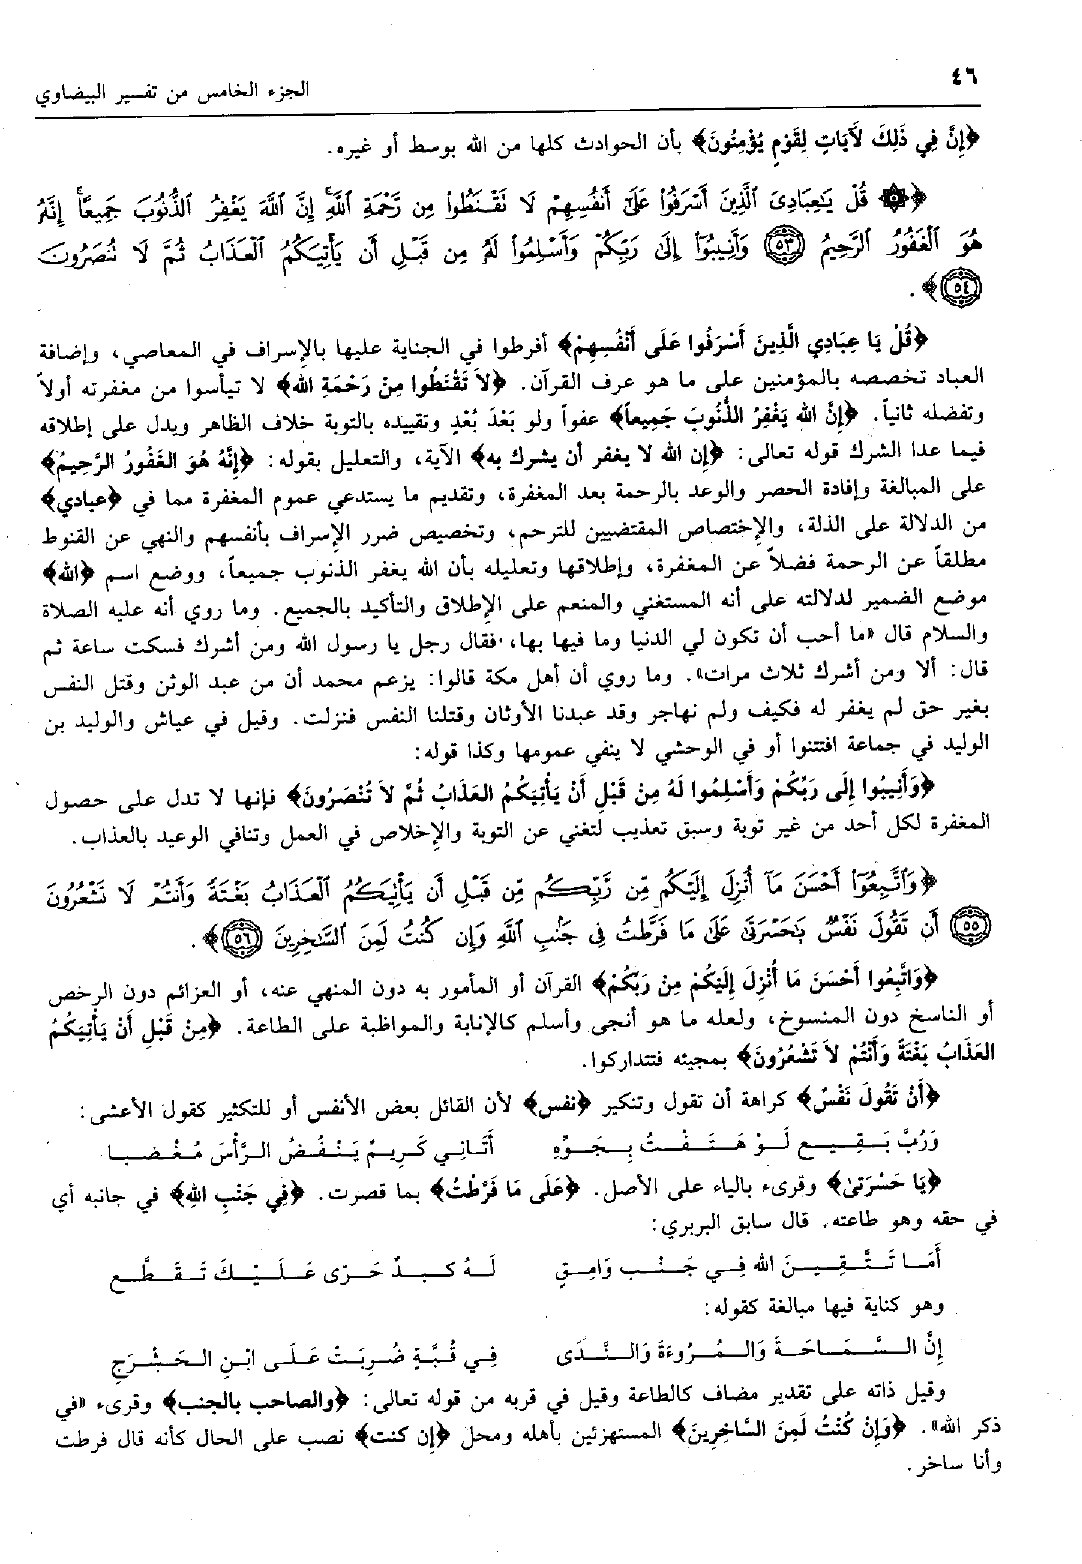 ٤٦
الجزء الخامس من تفسير البيضاوي
﴿إِنَّ فِي ذَلِكَ لَآيَاتٍ لِقَوْمٍ يُؤْمِنُونَ﴾ بأن الحوادث كلها من الله بوسط أو غيره.
﴿۞ قُلْ يَٰعِبَادِىَ ٱلَّذِينَ أَسْرَفُوا۟ عَلَىٰٓ أَنفُسِهِمْ لَا تَقْنَطُوا۟ مِن رَّحْمَةِ ٱللَّهِ إِنَّ ٱللَّهَ يَغْفِرُ ٱلذُّنُوبَ جَمِيعًا إِنَّهُۥ
هُوَ ٱلْغَفُورُ ٱلرَّحِيمُ ﴿٥٣﴾ وَأَنِيبُوٓا۟ إِلَىٰ رَبِّكُمْ وَأَسْلِمُوا۟ لَهُۥ مِن قَبْلِ أَن يَأْتِيَكُمُ ٱلْعَذَابُ ثُمَّ لَا تُنصَرُونَ
﴿٥٤﴾﴾.
﴿قُلْ يَا عِبَادِي الَّذِينَ أَسْرَفُوا عَلَى أَنْفُسِهِمْ﴾ أفرطوا في الجناية عليها بالإسراف في المعاصي، وإضافة
العباد تخصصه بالمؤمنين على ما هو عرف القرآن. ﴿لاَ تَقْنَطُوا مِنْ رَحْمَةِ الله﴾ لا تيأسوا من مغفرته أولاً
وتفضله ثانياً. ﴿إِنَّ الله يَغْفِرُ الذُّنُوبَ جَمِيعاً﴾ عفواً ولو بَعْدَ بُعْدٍ وتقييده بالتوبة خلاف الظاهر ويدل على إطلاقه
فيما عدا الشرك قوله تعالى: ﴿إن الله لا يغفر أن يشرك به﴾ الآية، والتعليل بقوله: ﴿إِنَّهُ هُوَ الغَفُورُ الرَّحِيمُ﴾
على المبالغة وإفادة الحصر والوعد بالرحمة بعد المغفرة، وتقديم ما يستدعي عموم المغفرة مما في ﴿عبادي﴾
من الدلالة على الذلة، والإختصاص المقتضيين للترحم، وتخصيص ضرر الإسراف بأنفسهم والنهي عن القنوط
مطلقاً عن الرحمة فضلاً عن المغفرة، وإطلاقها وتعليله بأن الله يغفر الذنوب جميعاً، ووضع اسم ﴿الله﴾
موضع الضمير لدلالته على أنه المستغني والمنعم على الإطلاق والتأكيد بالجميع. وما روي أنه عليه الصلاة
والسلام قال «ما أحب أن تكون لي الدنيا وما فيها بها، فقال رجل يا رسول الله ومن أشرك فسكت ساعة ثم
قال: ألا ومن أشرك ثلاث مرات». وما روي أن أهل مكة قالوا: يزعم محمد أن من عبد الوثن وقتل النفس
بغير حق لم يغفر له فكيف ولم نهاجر وقد عبدنا الأوثان وقتلنا النفس فنزلت. وقيل في عياش والوليد بن
الوليد في جماعة افتتنوا أو في الوحشي لا ينفي عمومها وكذا قوله:
﴿وَأَنِيبُوا إِلَى رَبِّكُمْ وَأَسْلِمُوا لَهُ مِنْ قَبْلِ أَنْ يَأْتِيَكُمُ العَذَابُ ثُمَّ لاَ تُنْصَرُونَ﴾ فإنها لا تدل على حصول
المغفرة لكل أحد من غير توبة وسبق تعذيب لتغني عن التوبة والإخلاص في العمل وتنافي الوعيد بالعذاب.
﴿وَٱتَّبِعُوٓا۟ أَحْسَنَ مَآ أُنزِلَ إِلَيْكُم مِّن رَّبِّكُم مِّن قَبْلِ أَن يَأْتِيَكُمُ ٱلْعَذَابُ بَغْتَةً وَأَنتُمْ لَا تَشْعُرُونَ
﴿٥٥﴾ أَن تَقُولَ نَفْسٌ يَٰحَسْرَتَىٰ عَلَىٰ مَا فَرَّطتُ فِى جَنۢبِ ٱللَّهِ وَإِن كُنتُ لَمِنَ ٱلسَّٰخِرِينَ ﴿٥٦﴾﴾.
﴿وَاتَّبِعُوا أَحْسَنَ مَا أُنْزِلَ إِلَيْكُمْ مِنْ رَبِّكُمْ﴾ القرآن أو المأمور به دون المنهي عنه، أو العزائم دون الرخص
أو الناسخ دون المنسوخ، ولعله ما هو أنجى وأسلم كالإنابة والمواظبة على الطاعة. ﴿مِنْ قَبْلِ أَنْ يَأْتِيَكُمُ
العَذَابُ بَغْتَةً وَأَنْتُمْ لاَ تَشْعُرُونَ﴾ بمجيئه فتتداركوا.
﴿أَنْ تَقُولَ نَفْسٌ﴾ كراهة أن تقول وتنكير ﴿نفس﴾ لأن القائل بعض الأنفس أو للتكثير كقول الأعشى:
وَرُبَّ بَقِيعٍ لَوْ هَتَفْتُ بِجَوِّهِ أَتَانِي كَرِيمٌ يَنْفُضُ الرَّأْسَ مُغْضَبا
﴿يَا حَسْرَتَى﴾ وقرىء بالياء على الأصل. ﴿عَلَى مَا فَرَّطْتُ﴾ بما قصرت. ﴿فِي جَنْبِ الله﴾ في جانبه أي
في حقه وهو طاعته. قال سابق البربري:
أَمَا تَتَّقِينَ الله فِي جَنْبِ وَامِقٍ لَهُ كَبِدٌ حَرَّى عَلَيْكَ تَقَطَّع
وهو كناية فيها مبالغة كقوله:
إِنَّ السَّمَاحَةَ وَالمُرُوءَةَ وَالنَّدَى فِي قُبَّةٍ ضُرِبَتْ عَلَى ابْنِ الحَشْرَجِ
وقيل ذاته على تقدير مضاف كالطاعة وقيل في قربه من قوله تعالى: ﴿والصاحب بالجنب﴾ وقرىء «في
ذكر الله». ﴿وَإِنْ كُنْتُ لَمِنَ السَّاخِرِينَ﴾ المستهزئين بأهله ومحل ﴿إن كنت﴾ نصب على الحال كأنه قال فرطت
وأنا ساخر.